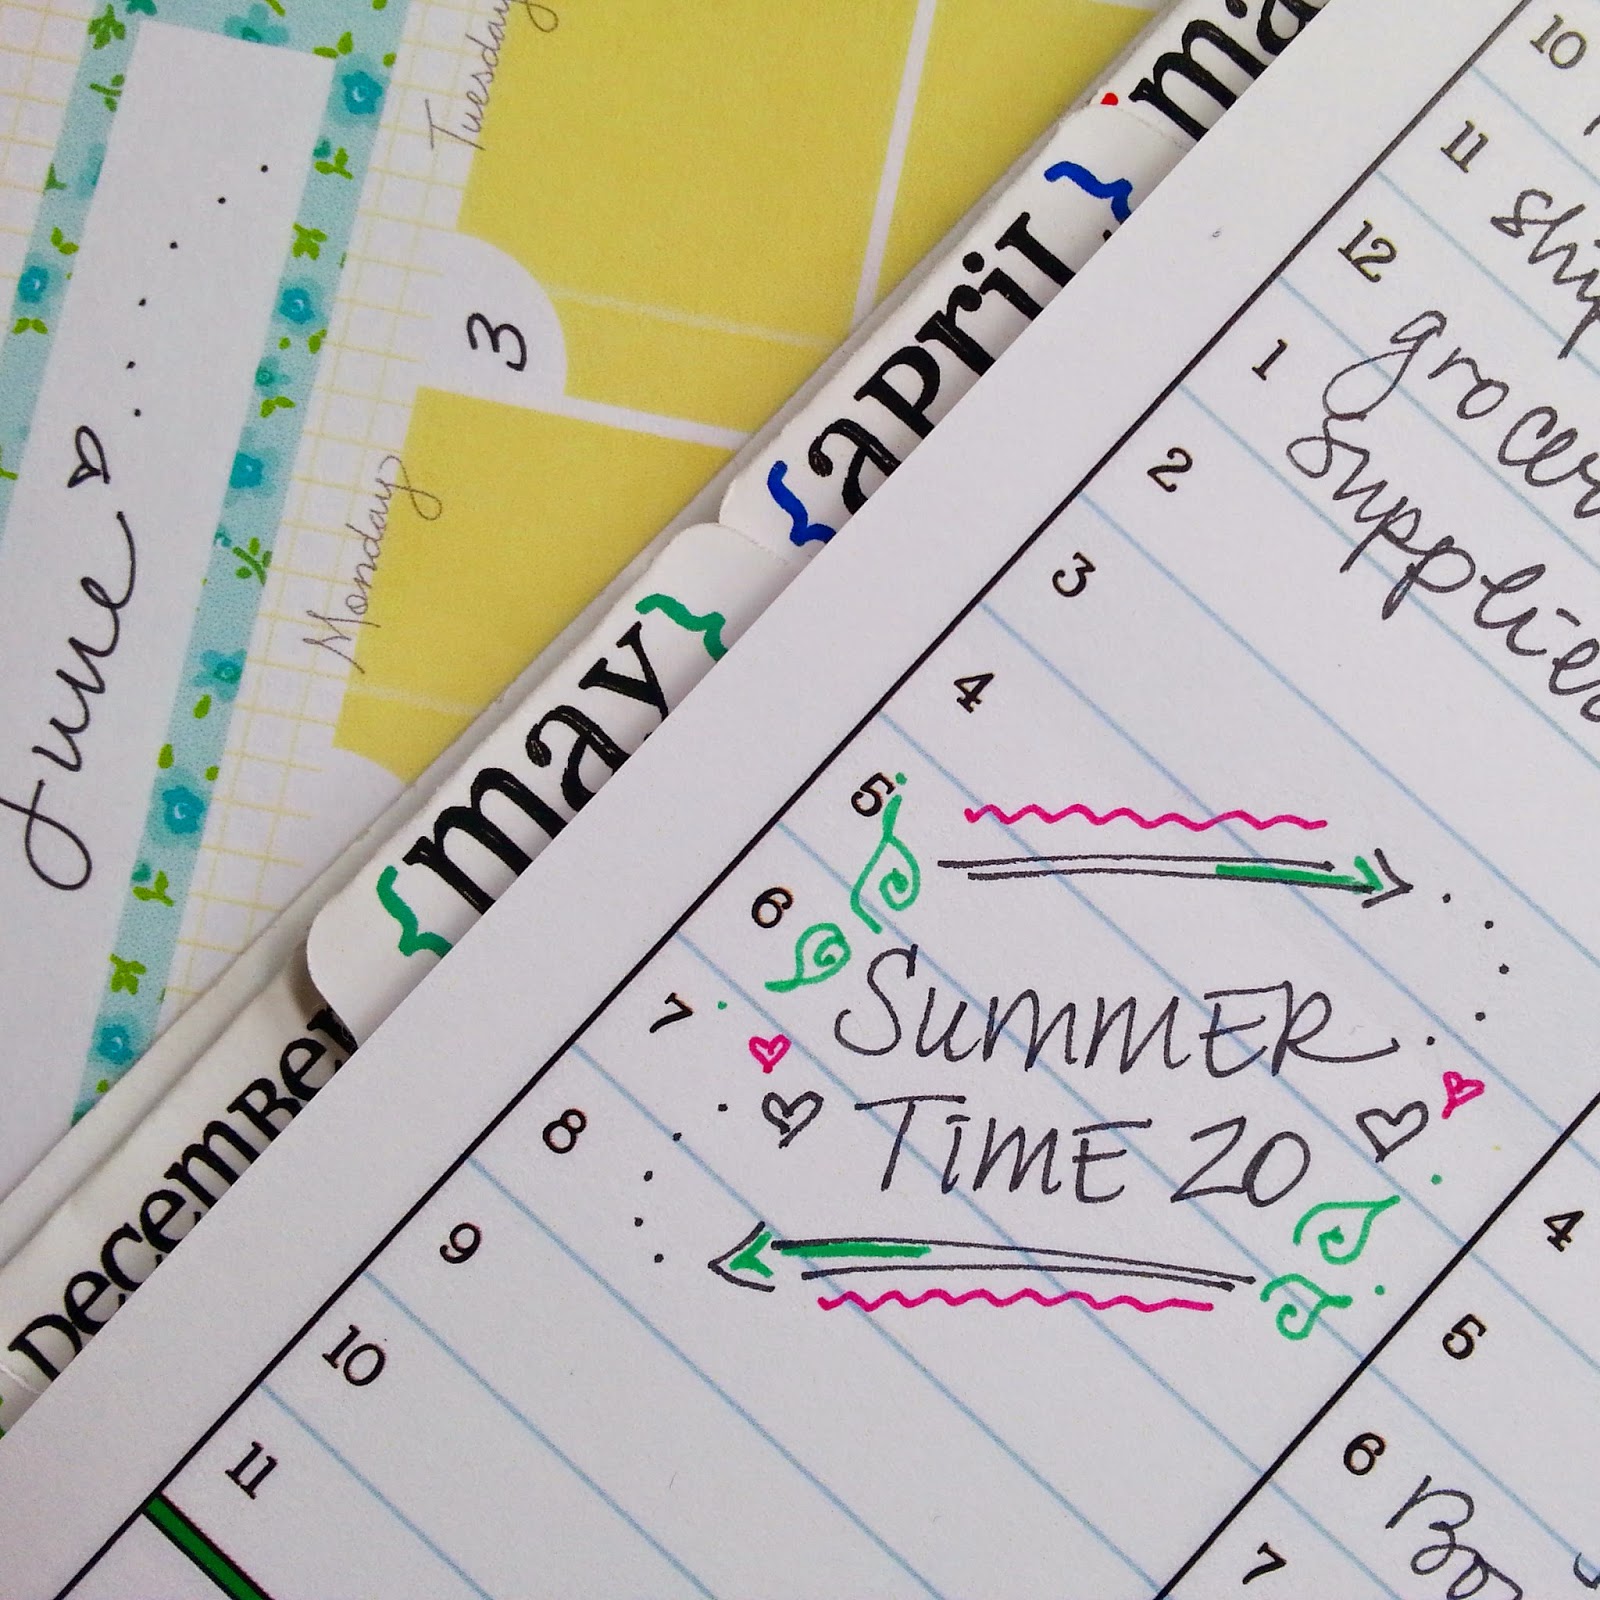 Tuesday
3
Monday
June
{APRIL}
{may}
DECEMBER
10
11
12
grocer
1
supplies
2
3
4
5
6
7
8
9
10
11
SUMMER
TIME 20
4
5
6
7